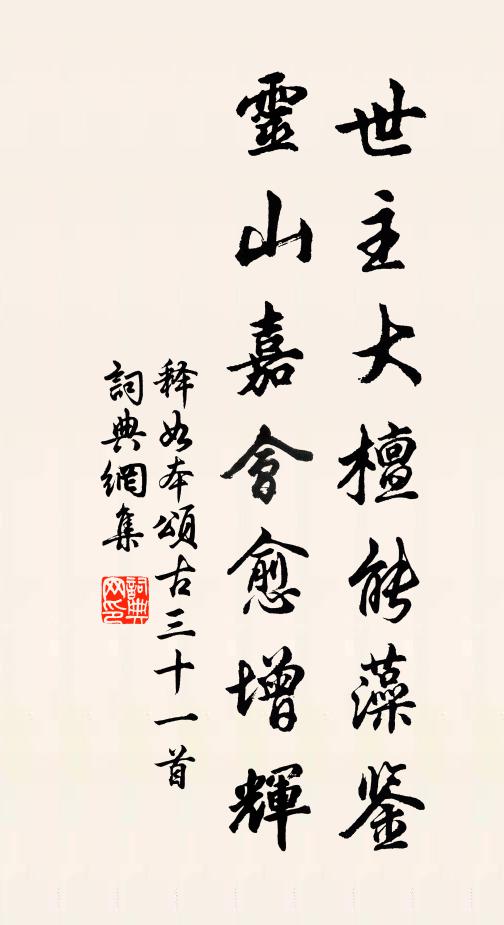 世主大檀能藻鉴
靈山嘉會愈增輝
释如本頌古三十一首
詞典網集
詞典网印